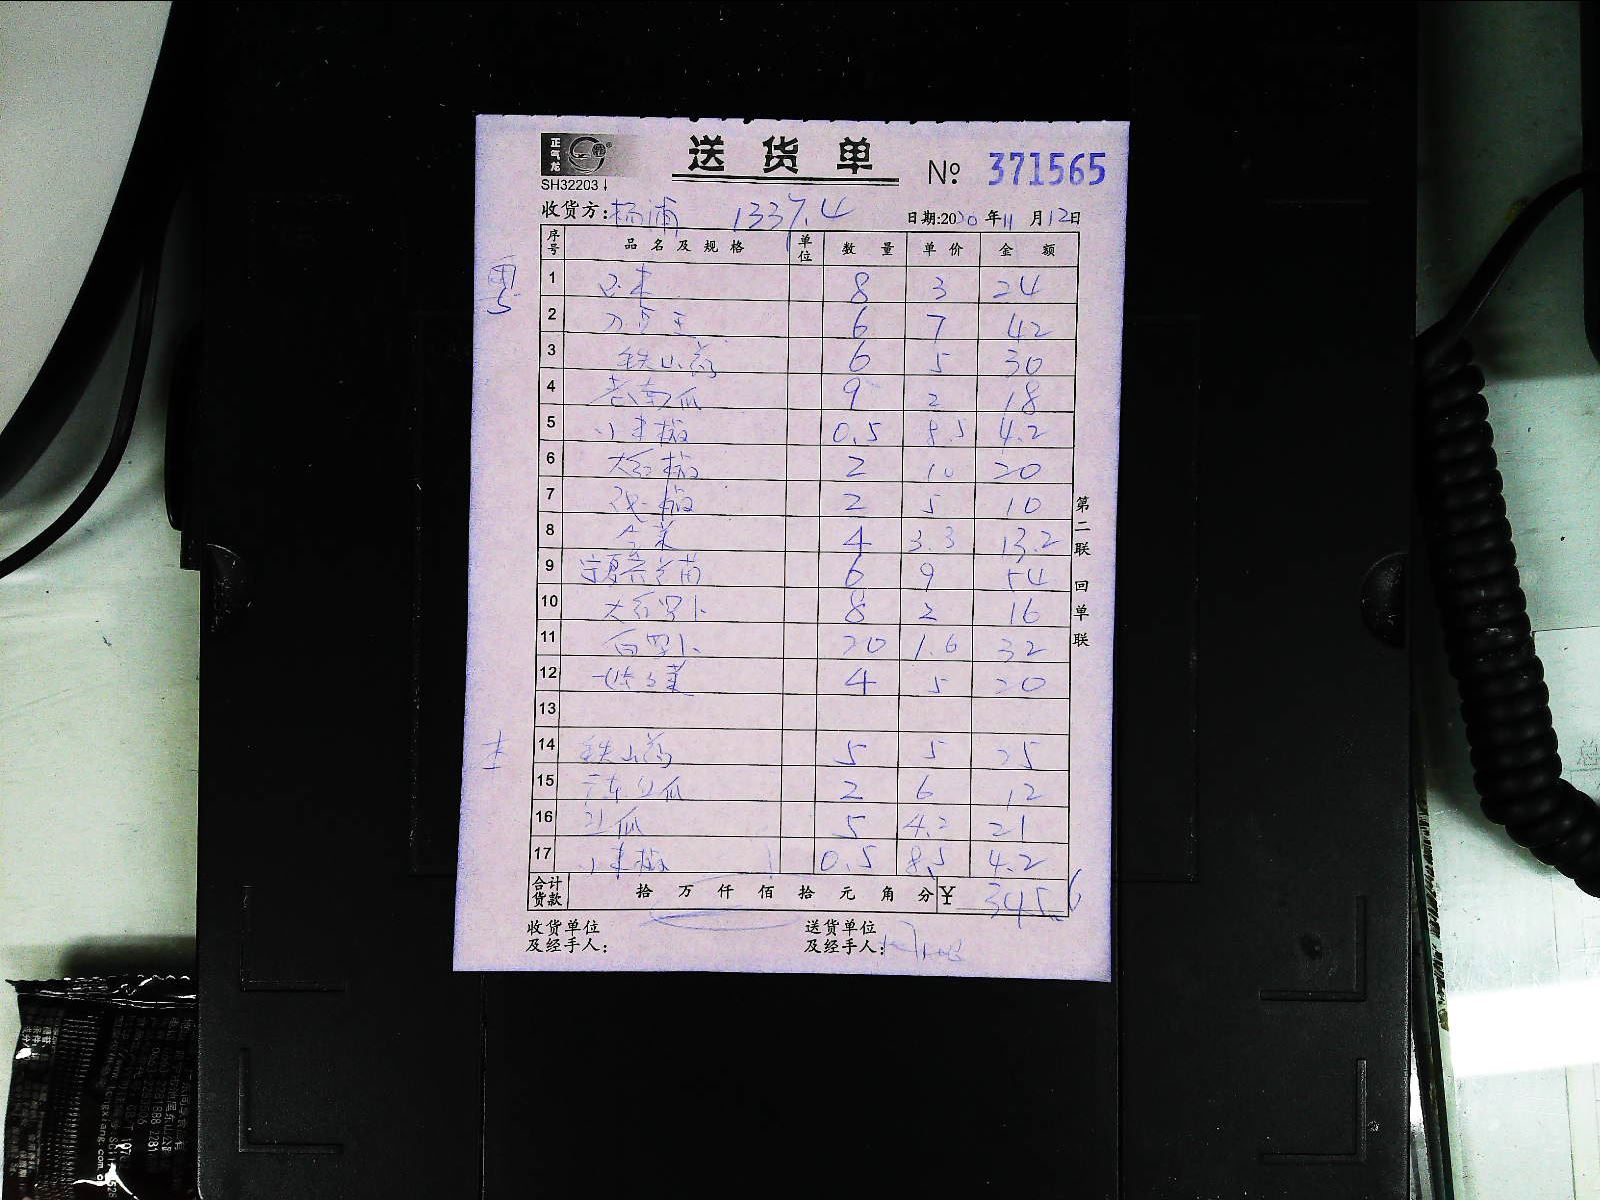 正气龙
送货单 № 371565
SH32203
收货方: 杨浦 1337.4 日期:2020年11月12日
序号 品名及规格 单位 数量 单价 金额
1 玉米 8 3 24
2 刀豆王 6 7 42
3 铁山药 6 5 30
4 老南瓜 9 2 18
5 小米椒 0.5 8.5 4.2
6 大红椒 2 10 20
7 椒 2 5 10
8 4 3.3 13.2
9 宁夏菜苗 6 9 54
10 大红罗卜 8 2 16
11 白罗卜 20 1.6 32
12 菜 4 5 20
13
14 铁山药 5 5 25
15 广东丝瓜 2 6 12
16 瓜 5 4.2 21
17 小米椒 0.5 8.5 4.2
合计货款 拾 万 仟 佰 拾 元 角 分 ¥ 345.6
收货单位及经手人:
送货单位及经手人:
第二联 回单联